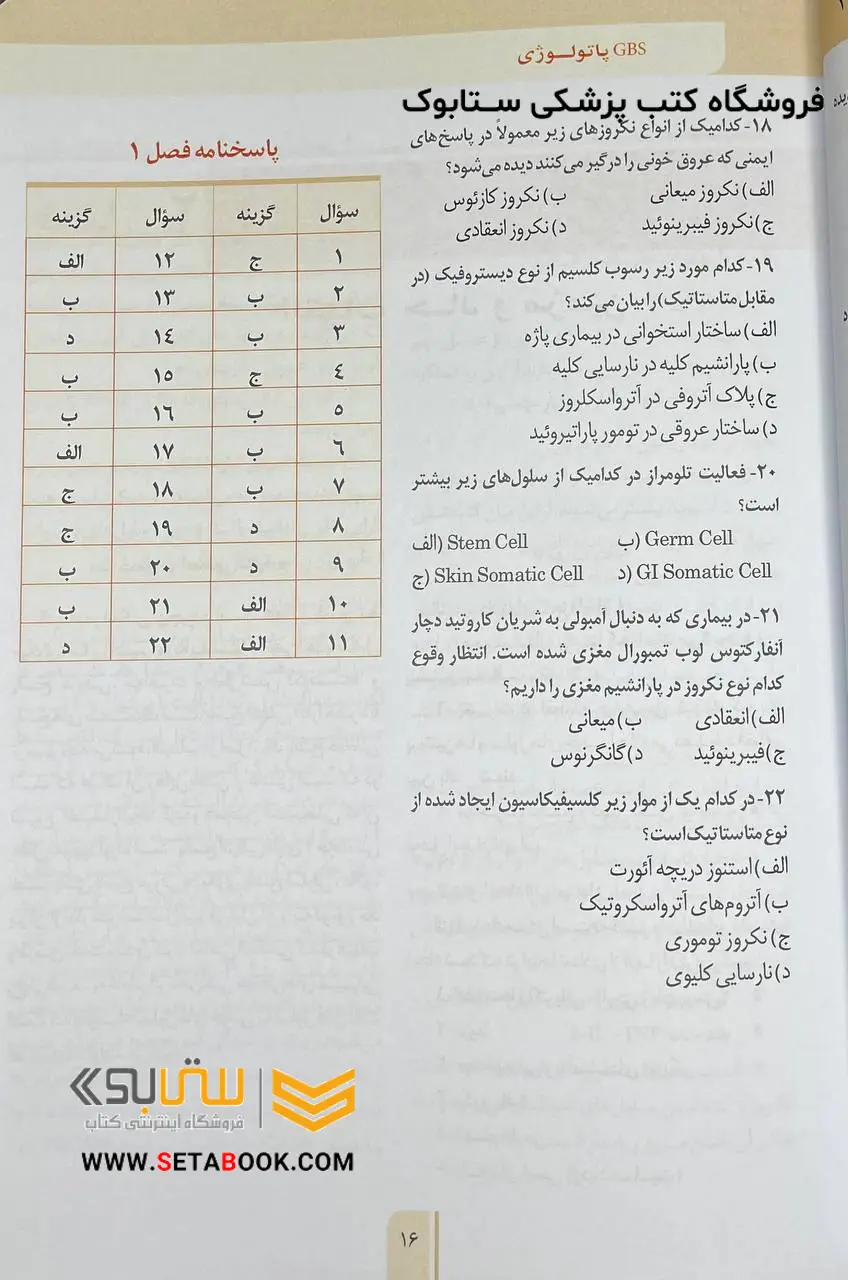 GBS پاتولــوژی
فروشگاه کتب پزشکی ستابوک
۱۸- کدامیک از انواع نکروزهای زیر معمولاً در پاسخ‌های
ایمنی که عروق خونی را درگیر می‌کنند دیده می‌شود؟
الف) نکروز میعانی ب) نکروز کازئوس
ج) نکروز فیبرینوئید د) نکروز انعقادی
۱۹- کدام مورد زیر رسوب کلسیم از نوع دیستروفیک (در
مقابل متاستاتیک) را بیان می‌کند؟
الف) ساختار استخوانی در بیماری پاژه
ب) پارانشیم کلیه در نارسایی کلیه
ج) پلاک آتروفی در آترواسکلروز
د) ساختار عروقی در تومور پاراتیروئید
۲۰- فعالیت تلومراز در کدامیک از سلول‌های زیر بیشتر
است؟
الف) Stem Cell ب) Germ Cell
ج) Skin Somatic Cell د) GI Somatic Cell
۲۱- در بیماری که به دنبال آمبولی به شریان کاروتید دچار
آنفارکتوس لوب تمبورال مغزی شده است. انتظار وقوع
کدام نوع نکروز در پارانشیم مغزی را داریم؟
الف) انعقادی ب) میعانی
ج) فیبرینوئید د) گانگرنوس
۲۲- در کدام یک از موار زیر کلسیفیکاسیون ایجاد شده از
نوع متاستاتیک است؟
الف) استنوز دریچه آئورت
ب) آتروم‌های آترواسکروتیک
ج) نکروز توموری
د) نارسایی کلیوی
پاسخنامه فصل ۱
سؤال گزینه سؤال گزینه
۱ ج ۱۲ الف
۲ ب ۱۳ ب
۳ ب ۱٤ د
٤ ج ۱۵ ب
۵ ب ۱۶ ب
۶ ب ۱۷ الف
۷ ب ۱۸ ج
۸ د ۱۹ ج
۹ د ۲۰ ب
۱۰ الف ۲۱ ب
۱۱ الف ۲۲ د
ستابوک
فروشگاه اینترنتی کتاب
WWW.SETABOOK.COM
۱۶